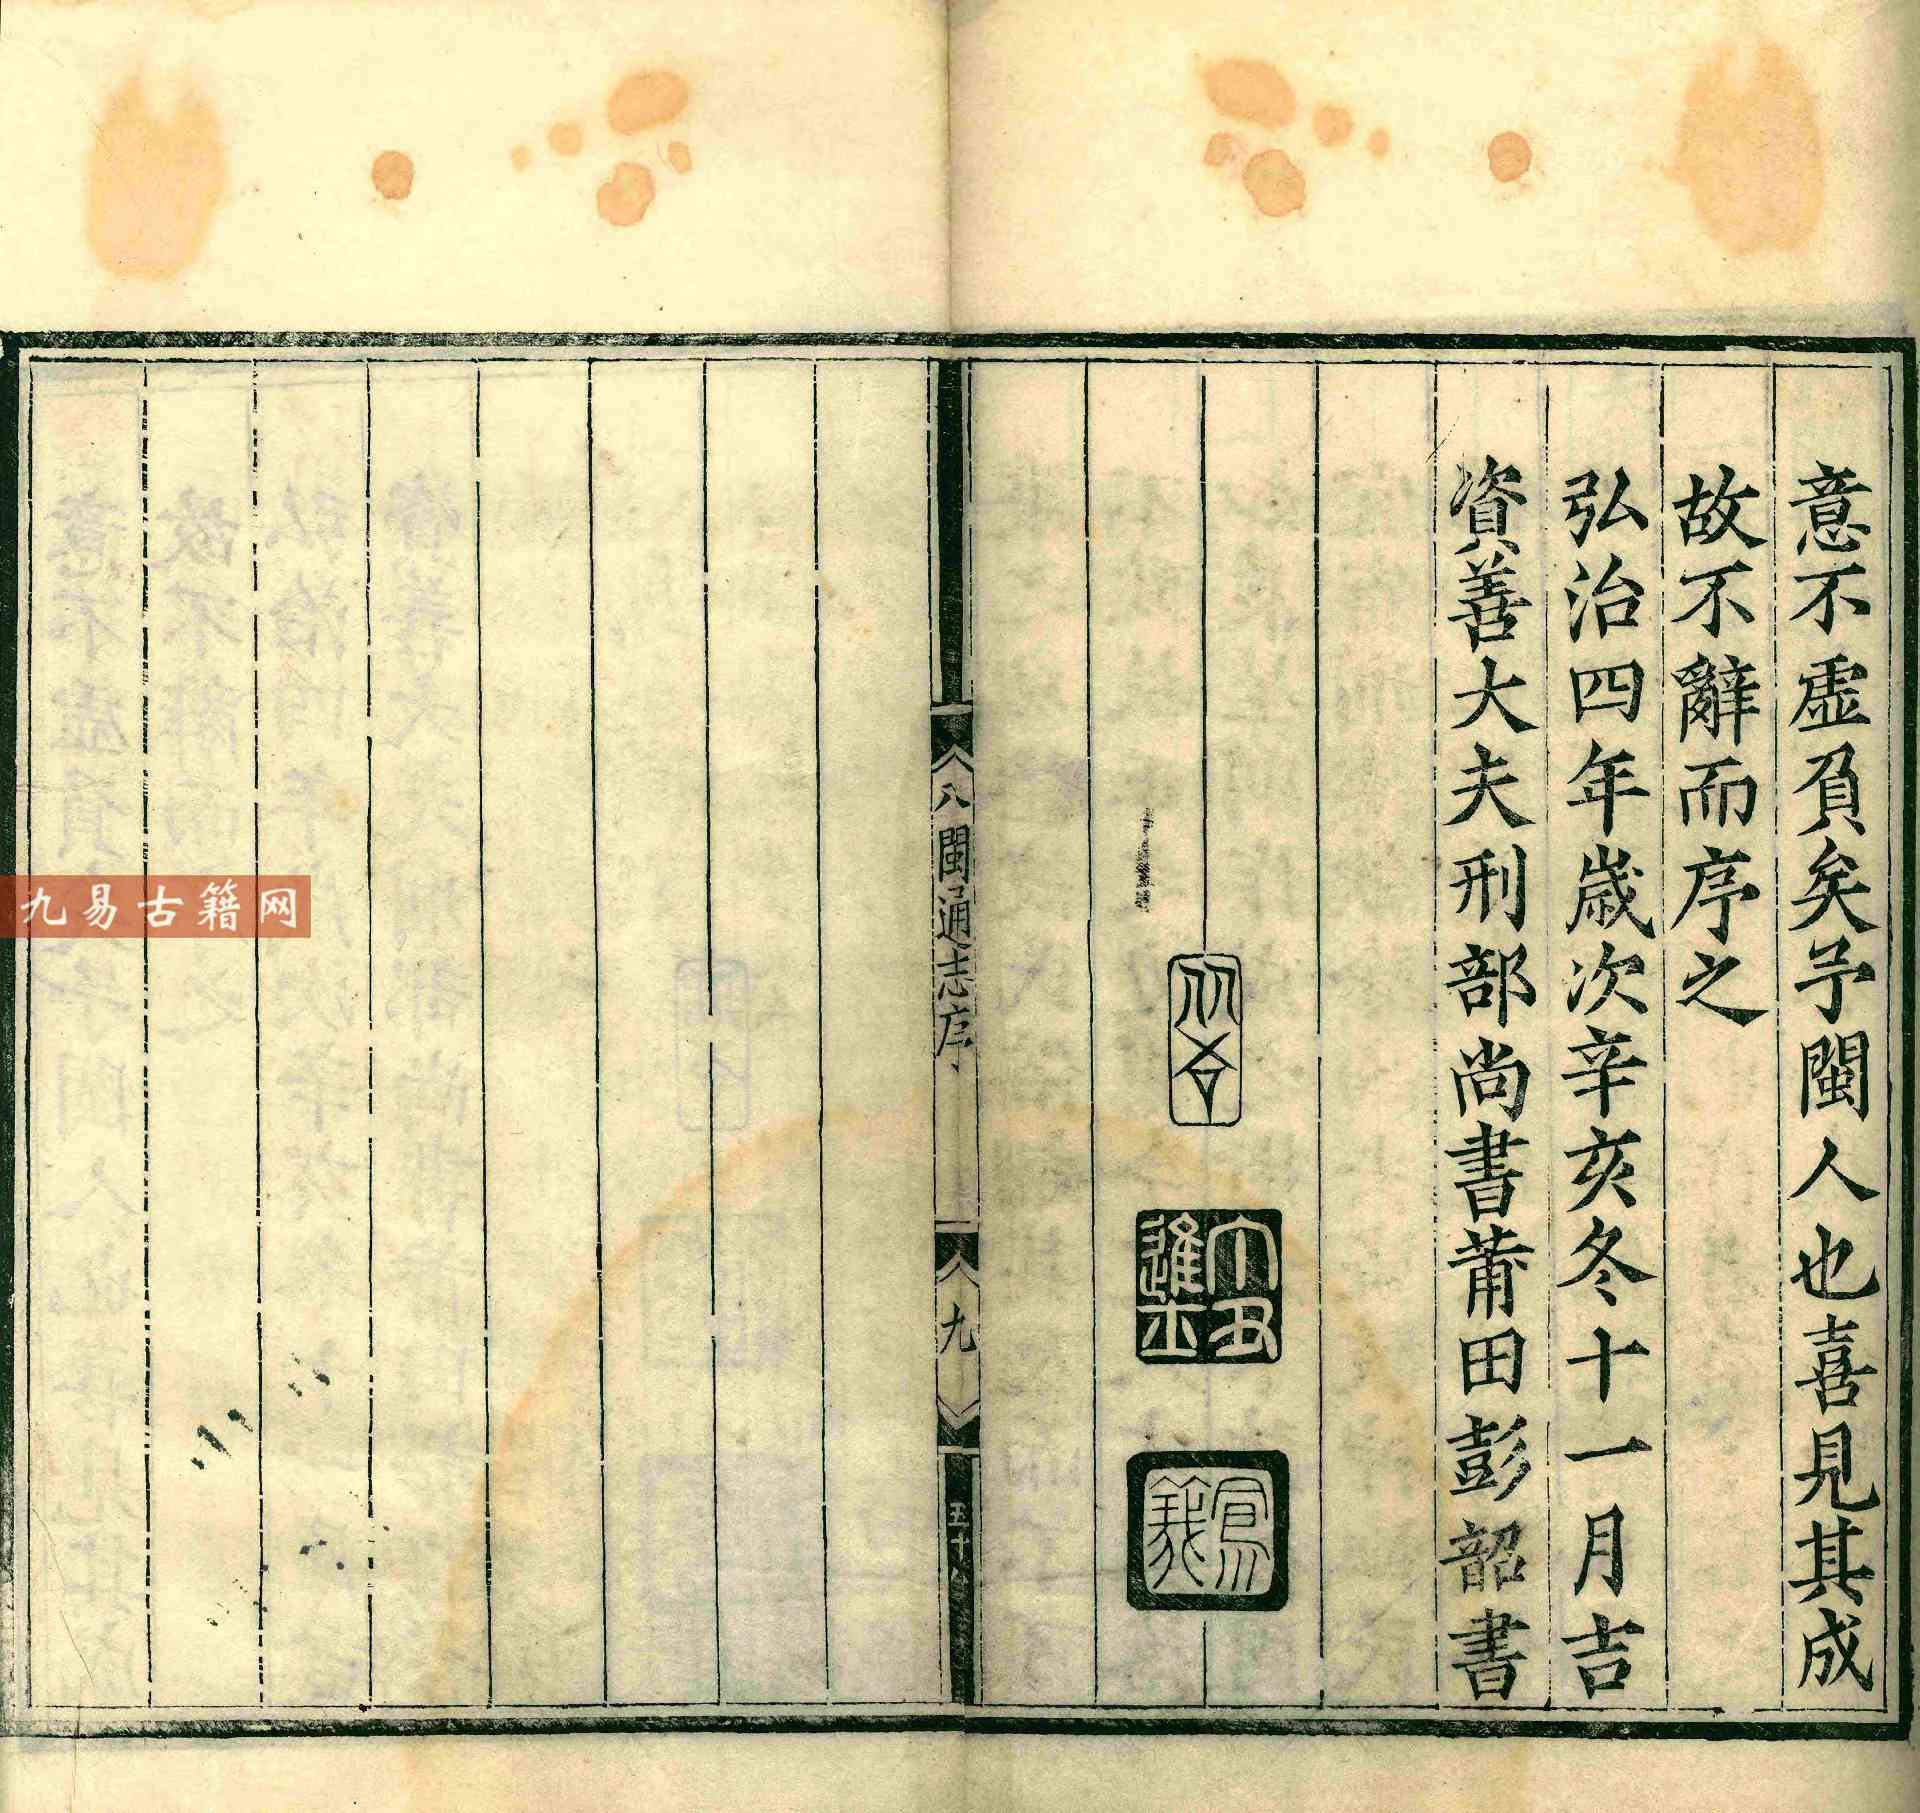 意不虛負矣予閩人也喜見其成
故不辭而序之
弘治四年歲次辛亥冬十一月吉
資善大夫刑部尚書莆田彭韶書
從吾
丁丑
進士
鳳
儀
八閩通志序
九
五十
九易古籍网